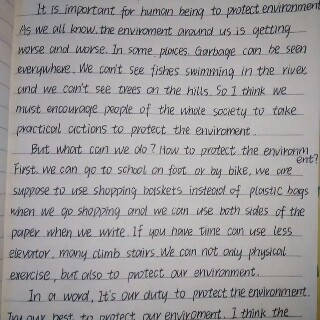 It is important for human being to protect environment
As we all know. the enviroment around us is getting
worse and worse. In some places. Garbage can be seen
everywhere. We can't see fishes swimming in the river,
and we can't see trees on the hills. So I think we
must encourage people of the whole society to take
practical actions to protect the enviroment.
But what can we do? How to protect the environm
ent?
First. we can go to school on foot or by bike, we are
suppose to use shopping baskets instead of plastic bags
when we go shopping and we can use both sides of the
paper when we write. If you have time can use less
elevator, many climb stairs. We can not only physical
exercise, but also to protect our environment.
In a word, It's our duty to protect the environment.
Try our best to protect our enviroment. I think the